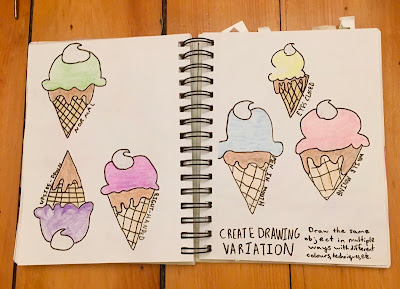 NORMAL
UPSIDE DOWN
EYES CLOSED
PEN IN MOUTH
CREATE DRAWING
VARIATION
Draw the same
object in multiple
ways with different
colours, techniques, etc.